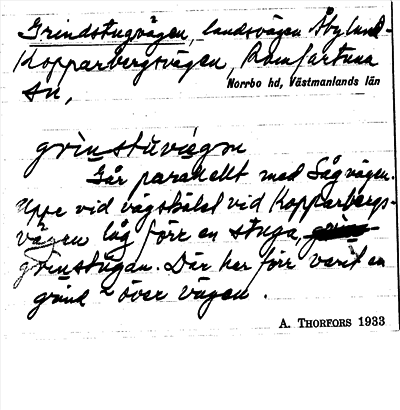 Grindstugvägen, landsvägen Åbylund-
Kopparbergsvägen, Romfartuna
sn,
Norrbo hd, Västmanlands län
grinstuviegen
Går parallellt med Sågvägen.
Uppe vid vägskälet vid Kopparbergs-
vägen låg förr en stuga,
grinstugan. Där har förr varit en
grind över vägen.
A. THORFORS 1933